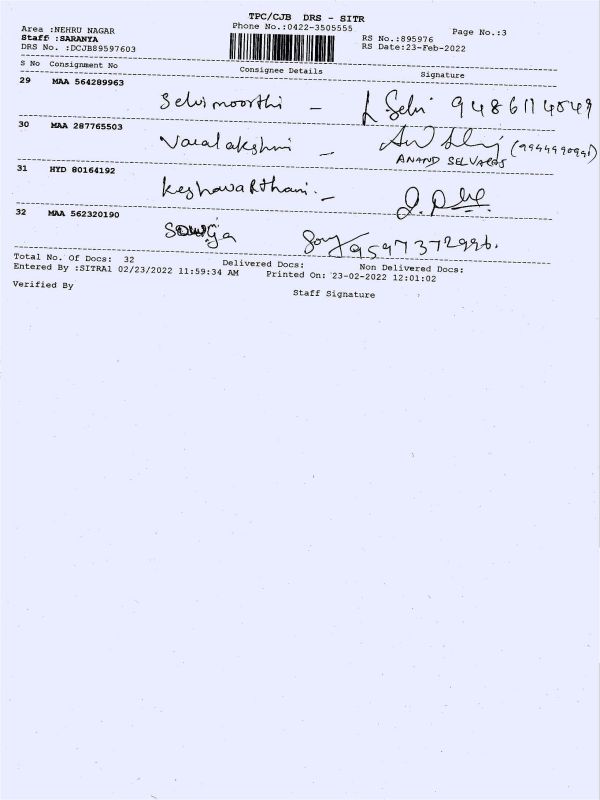 TPC/CJB DRS - SITR
Area :NEHRU NAGAR Phone No.:0422-3505555 Page No.:3
Staff :SARANYA RS No.:895976
DRS No. :DCJB89597603 RS Date:23-Feb-2022
S No Consignment No Consignee Details Signature
29 MAA 564289963
Selvimoorthi - L Selvi 9486114049
30 MAA 287765503
Varalakshmi -
ANAND SELVARAJ
31 HYD 80164192
Keshavardhani. -
32 MAA 562320190
Sowmya Sow 9597372996.
Total No. Of Docs: 32 Delivered Docs: Non Delivered Docs:
Entered By :SITRA1 02/23/2022 11:59:34 AM Printed On: 23-02-2022 12:01:02
Verified By Staff Signature